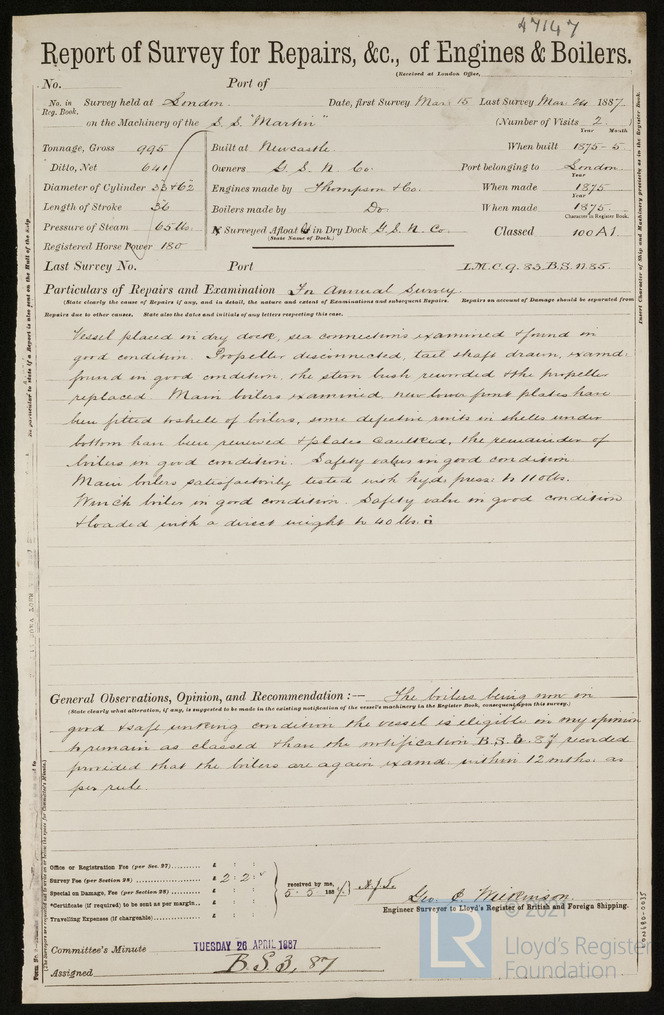 47147
Report of Survey for Repairs, &c., of Engines & Boilers.
(Received at London Office,
No. Port of
No. in Reg. Book. Survey held at London Date, first Survey Mar: 15 Last Survey Mar. 24 1887
on the Machinery of the S.S. "Martin" (Number of Visits 2)
Tonnage, Gross 995 Built at Newcastle When built Year Month 1875-5
Ditto, Net 641 Owners G. S. N. Co Port belonging to London
Diameter of Cylinder 36 & 62 Engines made by Thompson & Co. When made Year 1875
Length of Stroke 36 Boilers made by Do When made Year 1875
Pressure of Steam 65 lbs. Surveyed Afloat & in Dry Dock G. S. N. Co. Classed Character in Register Book. 100 A1
(State Name of Dock.)
Registered Horse Power 180
Last Survey No. Port L.M.C. 9. 83. B.S. 11. 85.
Particulars of Repairs and Examination For Annual Survey
(State clearly the cause of Repairs if any, and in detail, the nature and extent of Examinations and subsequent Repairs. Repairs on account of Damage should be separated from
Repairs due to other causes. State also the dates and initials of any letters respecting this case.
Vessel placed in dry dock, sea connections examined & found in
good condition. Propeller disconnected, tail shaft drawn, examd.
found in good condition, the stern bush rewooded & the propeller
replaced. Main boilers examined, new lower front plates have
been fitted to shell of boilers, some defective rivits in shells under
bottom have been renewed & plates caulked, the remainder of
boilers in good condition. Safety valves in good condition
Main boilers satisfactorily tested with hyd: press: to 110 lbs.
Winch boiler in good condition. Safety valve in good condition
& loaded with a direct weight to 40 lbs.
General Observations, Opinion, and Recommendation :— The boilers being now in
(State clearly what alteration, if any, is suggested to be made in the existing notification of the vessel's machinery in the Register Book, consequent upon this survey.)
good & safe working condition the vessel is eligible in my opinion
to remain as classed & have the notification B.S. 3. 87 recorded
provided that the boilers are again examd. within 12 mths. as
per rule.
Office or Registration Fee (per Sec. 27).......... £ : :
Survey Fee (per Section 28)............... £ 2 : 2 :
Special on Damage, Fee (per Section 28)..... £ : : received by me,
5. 5. 1887
Certificate (if required) to be sent as per margin... £ : :
Travelling Expenses (if chargeable).............. £ : :
Geo. C. Wilkinson
Engineer Surveyor to Lloyd's Register of British and Foreign Shipping.
Committee's Minute TUESDAY 26 APRIL 1887
Assigned B.S. 3, 87
Insert Character of Ship and Machinery precisely as in the Register Book.
LON690-0035
© 2021
LR
Lloyd's Register
Foundation